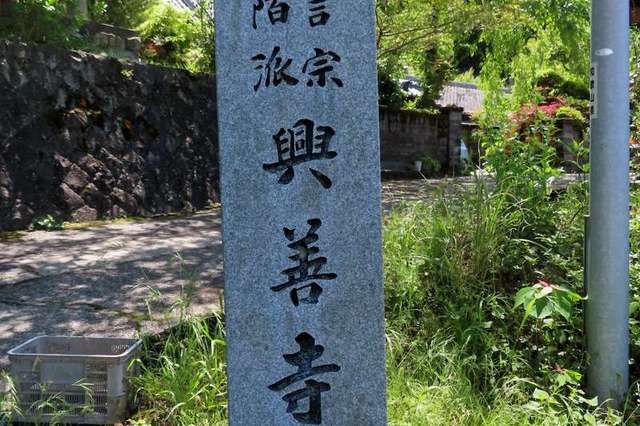 言宗
陌派
興善寺